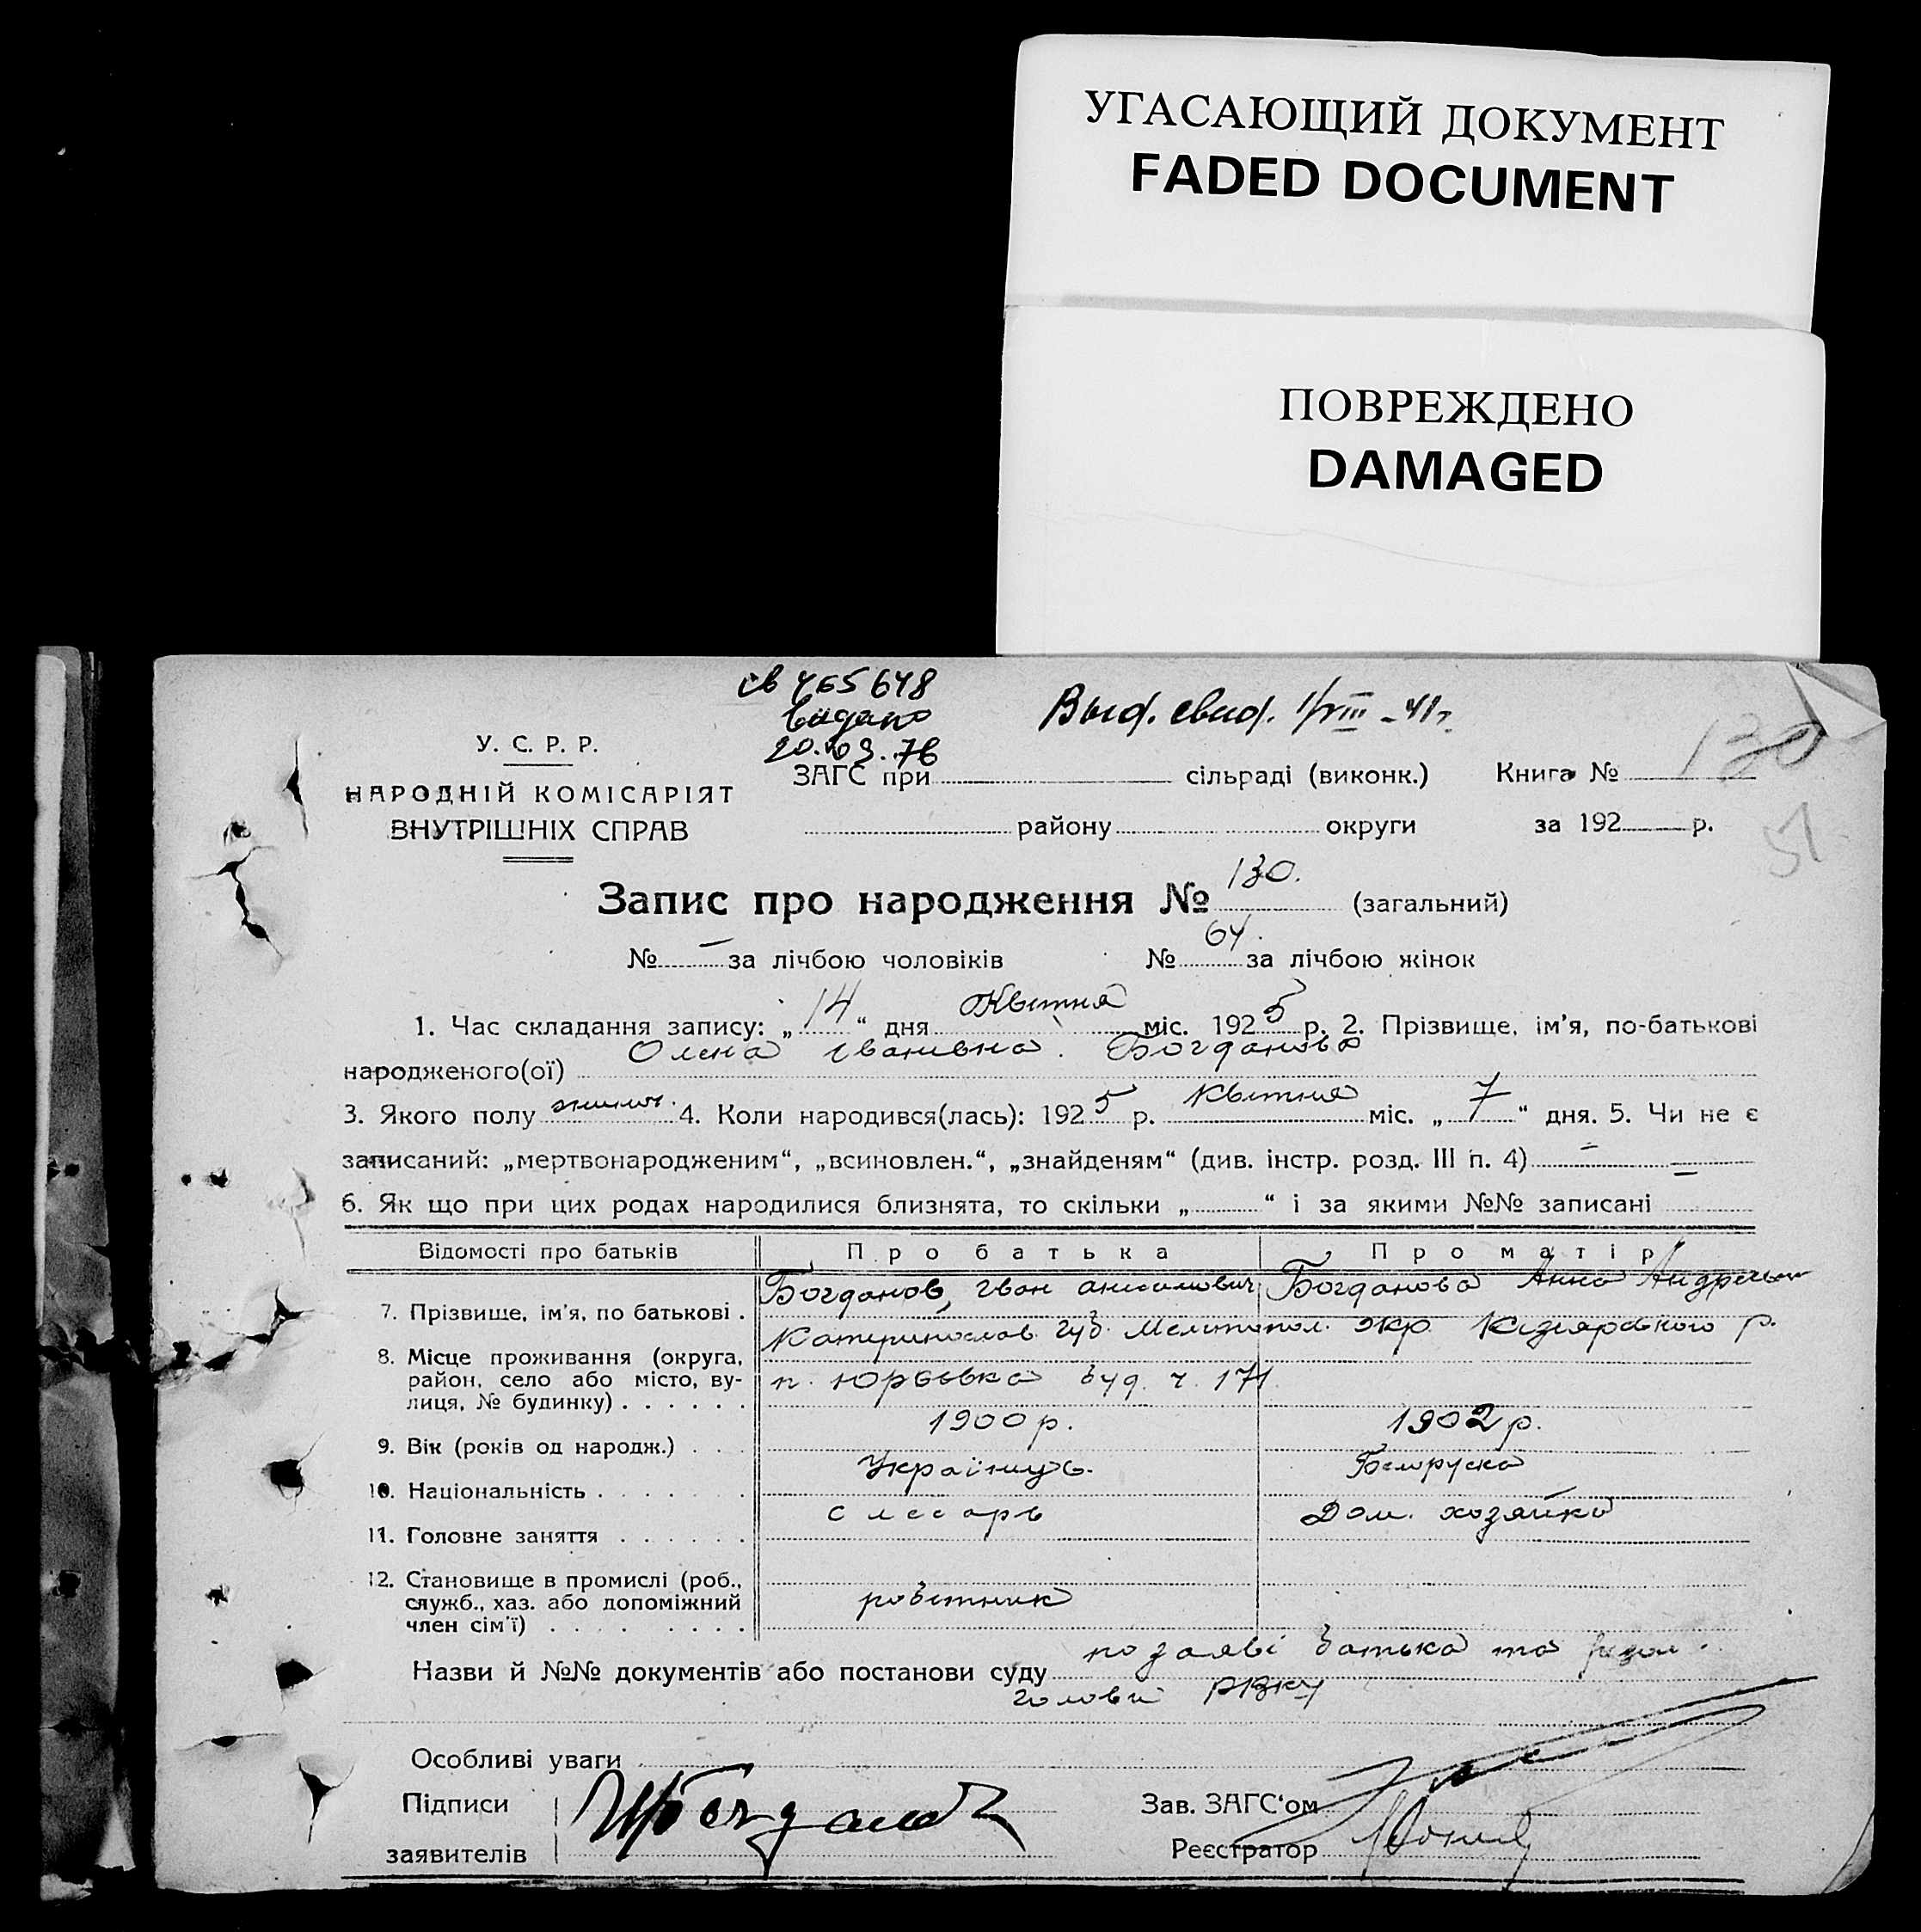 УГАСАЮЩИЙ ДОКУМЕНТ
FADED DOCUMENT
ПОВРЕЖДЕНО
DAMAGED
св 465648
видано
20.03.76
Выд. свид. 1/VIII-41г
130
51
У. С. Р. Р.
НАРОДНІЙ КОМІСАРІЯТ
ВНУТРІШНІХ СПРАВ
ЗАГС при сільраді (виконк.) Книга №
району округи за 192 р.
Запис про народження № 130. (загальний)
№ — за лічбою чоловіків № 64. за лічбою жінок
1. Час складання запису: „14“ дня Квітня міс. 1925 р. 2. Прізвище, ім’я, по-батькові
народженого(ої) Олена Іванівна Богданова
3. Якого полу жіноч. 4. Коли народився(лась): 1925 р. Квітня міс. „7“ дня. 5. Чи не є
записаний: „мертвонародженим“, „всиновлен.“, „знайденям“ (див. інстр. розд. III п. 4) — —
6. Як що при цих родах народилися близнята, то скільки „ “ і за якими №№ записані
Відомості про батьків Про батька Про матір
7. Прізвище, ім’я, по батькові . Богданов, Іван Богданова Анна
8. Місце проживання (округа, район, село або місто, вулиця, № будинку) . . . . . . Катеринослав. губ. Мелітопол. окр. Кізіярського р.
п. Юрьівка буд. ч. 171
9. Вік (років од народж.) . . . 1900 р. 1902 р.
10. Національність . . . . . . . Українць. Белоруска
11. Головне заняття . . . . . . слесарь Дом. хозяйка
12. Становище в промислі (роб., служб., хаз. або допоміжний член сім’ї) . . . . . . . . робітник
Назви й №№ документів або постанови суду по заяві батька та
голови РВКу
Особливі уваги
Підписи
заявителів
Зав. ЗАГС‘ом
Реєстратор